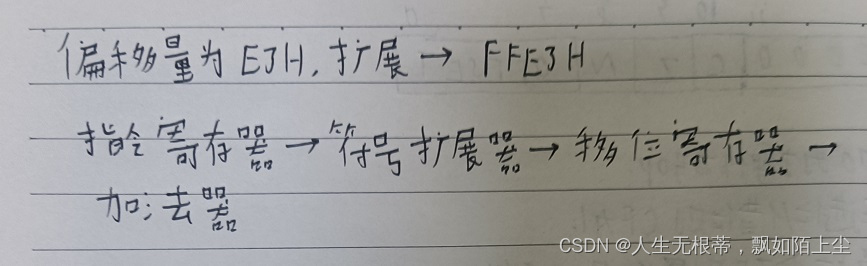 偏移量为 E3H, 扩展 → FFE3H
指令寄存器 → 符号扩展器 → 移位寄存器 →
加法器
CSDN @人生无根蒂，飘如陌上尘